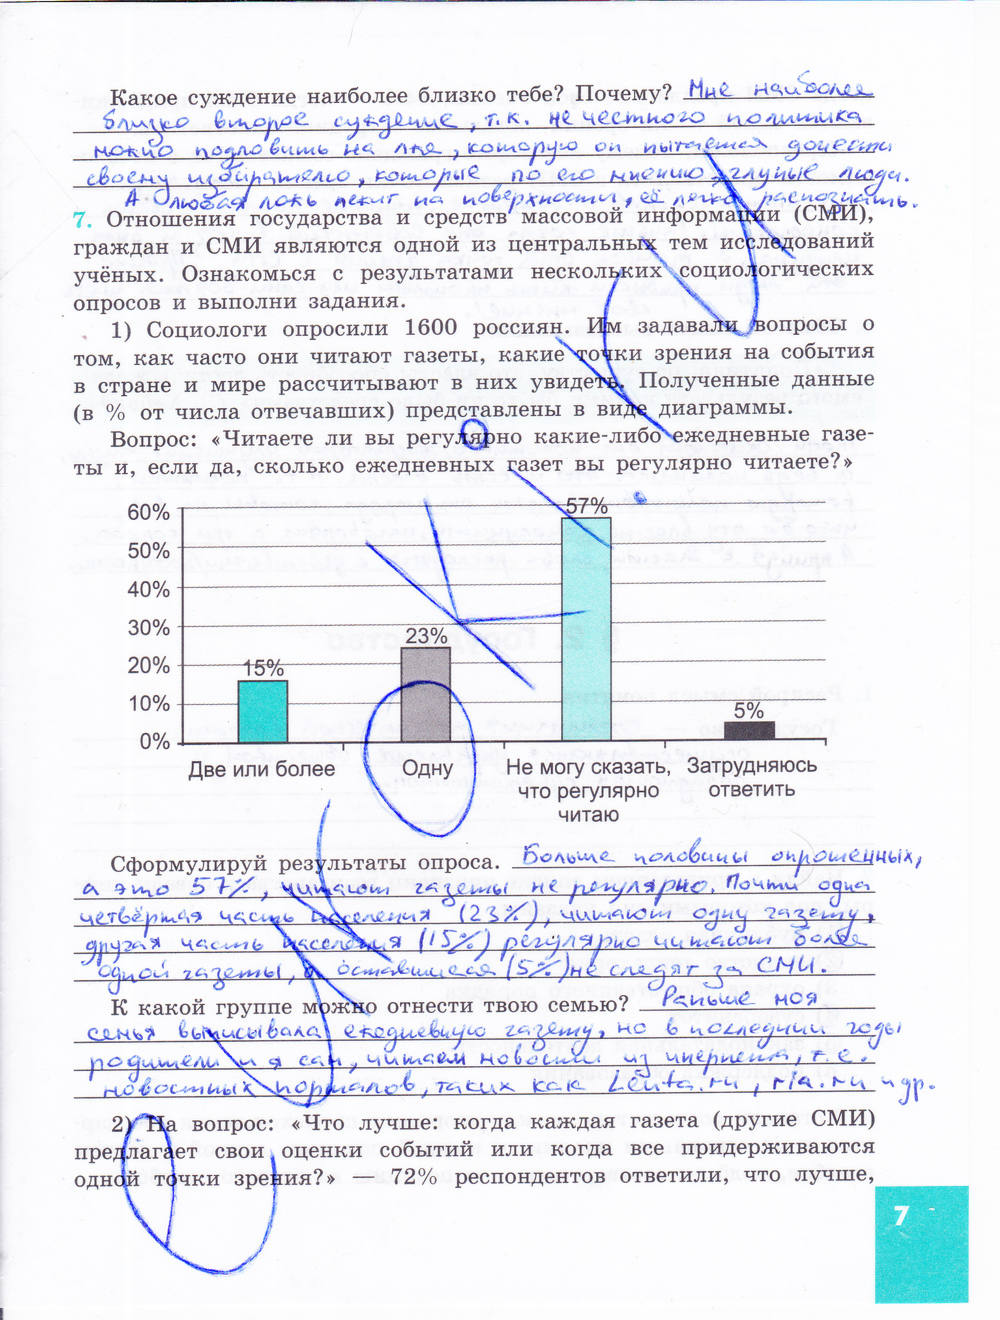 Какое суждение наиболее близко тебе? Почему? Мне наиболее
близко второе суждение, т.к. не честного политика
можно подловить на лже, которую он пытается донести
своему избирателю, которые по его мнению, глупые люди.
А любая ложь лежит на поверхности, её легко распознать.
7. Отношения государства и средств массовой информации (СМИ),
граждан и СМИ являются одной из центральных тем исследований
учёных. Ознакомься с результатами нескольких социологических
опросов и выполни задания.
1) Социологи опросили 1600 россиян. Им задавали вопросы о
том, как часто они читают газеты, какие точки зрения на события
в стране и мире рассчитывают в них увидеть. Полученные данные
(в % от числа отвечавших) представлены в виде диаграммы.
Вопрос: «Читаете ли вы регулярно какие-либо ежедневные газе-
ты и, если да, сколько ежедневных газет вы регулярно читаете?»
60%
50%
40%
30%
20%
10%
0%
15%
23%
57%
5%
Две или более
Одну
Не могу сказать,
что регулярно
читаю
Затрудняюсь
ответить
Сформулируй результаты опроса. Больше половины опрошенных,
а это 57%, читают газеты не регулярно. Почти одна
четвёртая часть населения (23%), читают одну газету,
другая часть населения (15%) регулярно читают более
одной газеты, а оставшиеся (5%) не следят за СМИ.
К какой группе можно отнести твою семью? Раньше моя
семья выписывала ежедневную газету, но в последнии годы
родители и я сам, читаем новости из инернета, т.е.
новостных порталов, таких как Lenta.ru, ria.ru и др.
2) На вопрос: «Что лучше: когда каждая газета (другие СМИ)
предлагает свои оценки событий или когда все придерживаются
одной точки зрения?» — 72% респондентов ответили, что лучше,
7